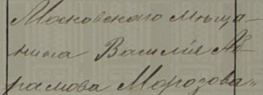 Московскаго Мѣща-
нина Василія Аб-
рамова Морозова